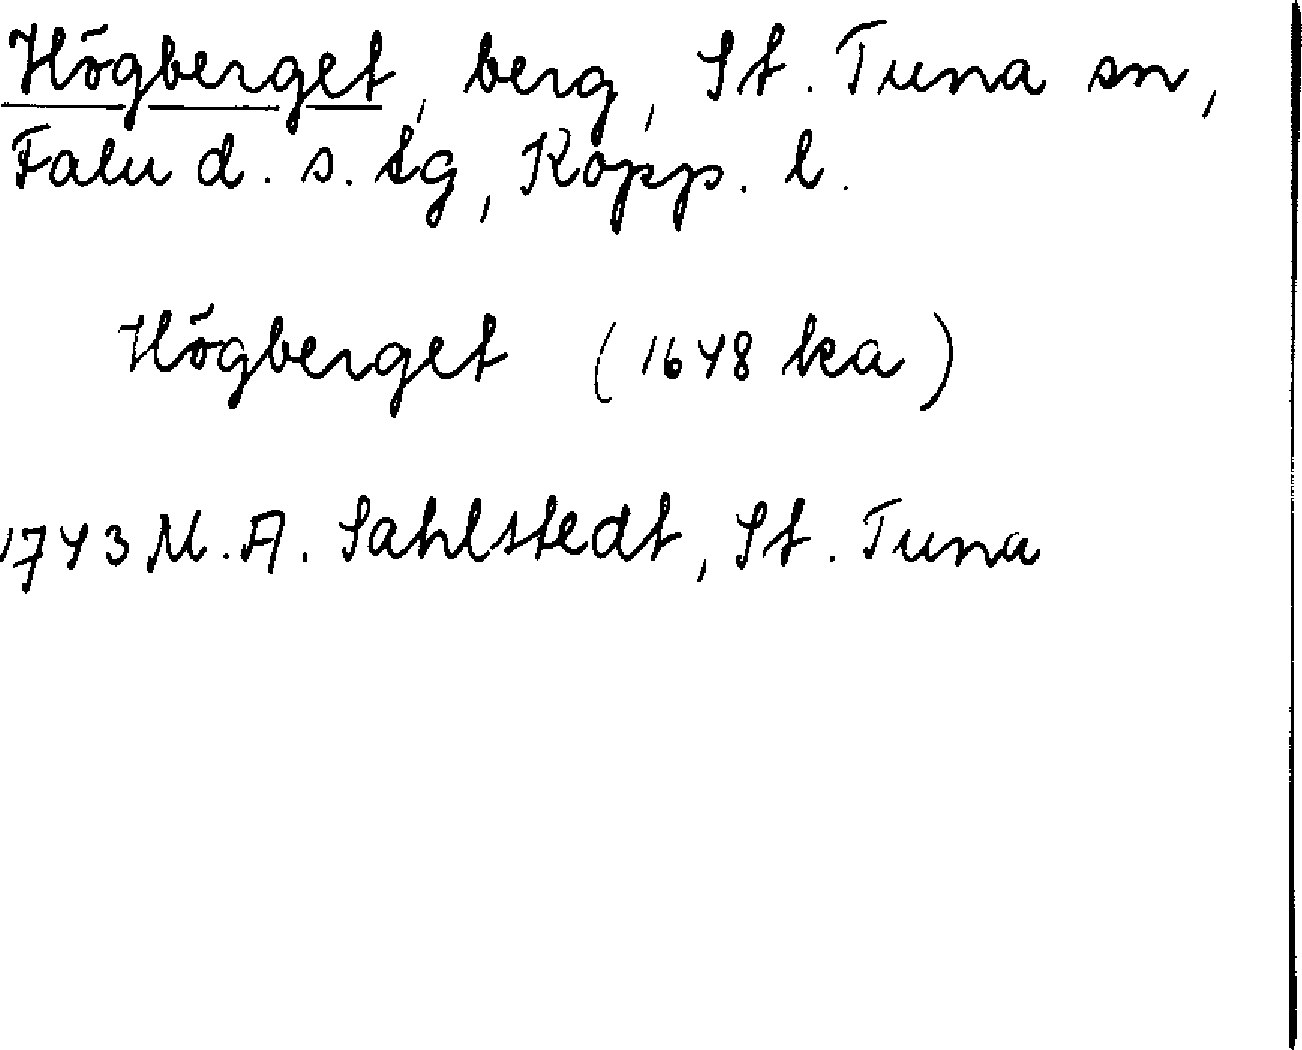 Högberget, berg, St. Tuna sn,
Falu d. s. tg, Kopp. l.
Högberget (1648 ka)
1743 M. A. Sahlstedt, St. Tuna